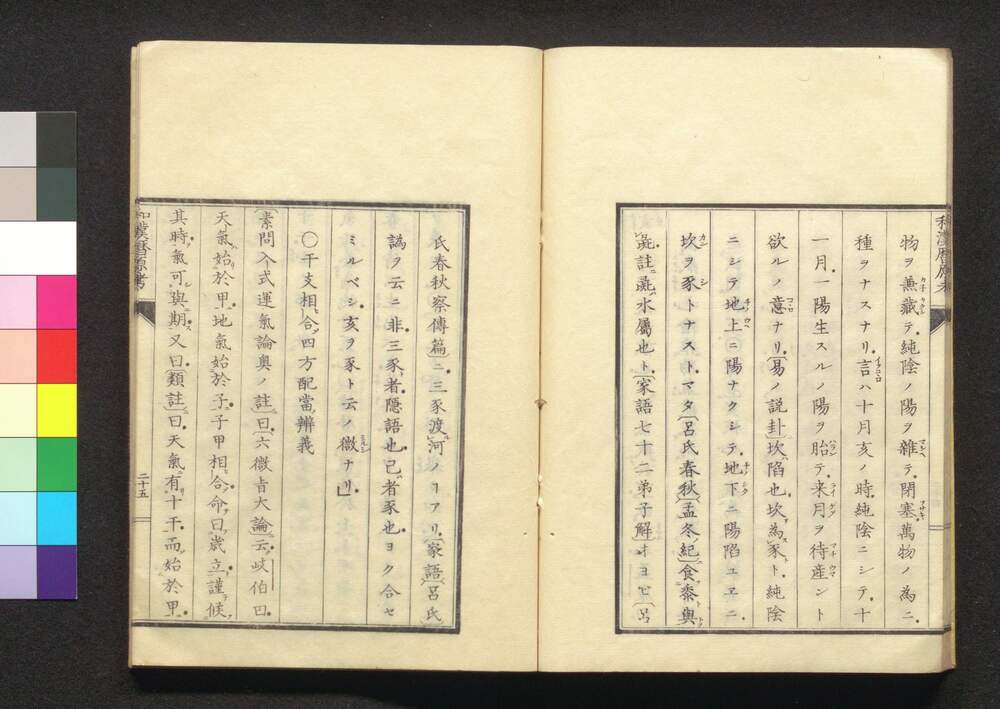 物ヲ兼藏テ純陰ノ陽ヲ雜テ閉塞萬物ノ為ニ
種ヲナスナリ言ハ十月亥ノ時純陰ニシテ十
一月一陽生スルノ陽ヲ胎テ来月ヲ待産ント
欲ルノ意ナリ易ノ説卦坎陷也坎為豕ト純陰
ニシテ地上ニ陽ナクシテ地下ニ陽陷ユヱニ
坎ヲ豕トナストマタ呂氏春秋孟冬紀食黍與
彘註彘水屬也ト家語七十二弟子解オヨビ呂
氏春秋察傳篇ニ三豕渡河ノヿアリ家語呂氏
譌ヲ云ニ非三豕者隠語也己者豕也ヨク合セ
ミルベシ亥ヲ豕ト云ノ徴ナリ
〇干支相合四方配當辨義
素問入式運氣論奥ノ註曰六微旨大論云岐伯曰
天氣始於甲地氣始於子子甲相合命曰歲立謹候
其時氣可與期又曰類註曰天氣有十干而始於甲
二十五